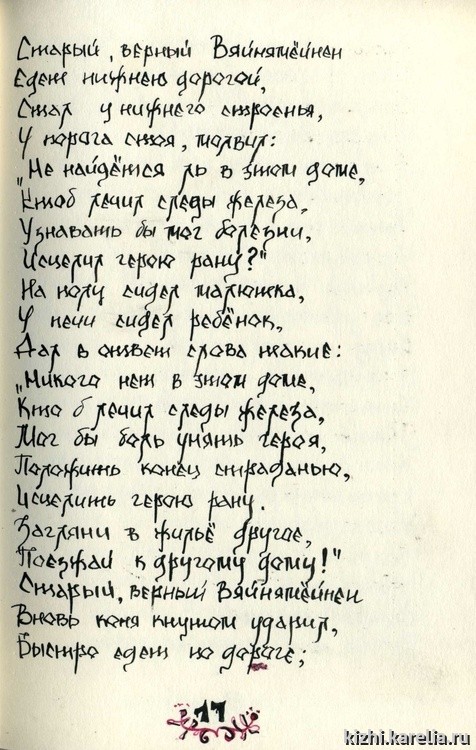 Старый, верный Вяйнямёйнен
Едет нижнею дорогой,
Стал у нижнего строенья,
У порога стоя, молвил:
"Не найдётся ль в этом доме,
"Кто б лечил следы железа,
Узнавать бы мог болезни,
Исцелил герою рану?"
На полу сидел малютка,
У печи сидел ребёнок,
Дал в ответ слова такие:
"Никого нет в этом доме,
Кто б лечил следы железа,
Мог бы боль унять героя,
Положить конец страданью,
Исцелить герою рану.
Загляни в жильё другое,
Поезжай к другому дому!"
Старый, верный Вяйнямёйнен
Вновь коня кнутом ударил,
Быстро едет по дороге;
11
kizhi.karelia.ru